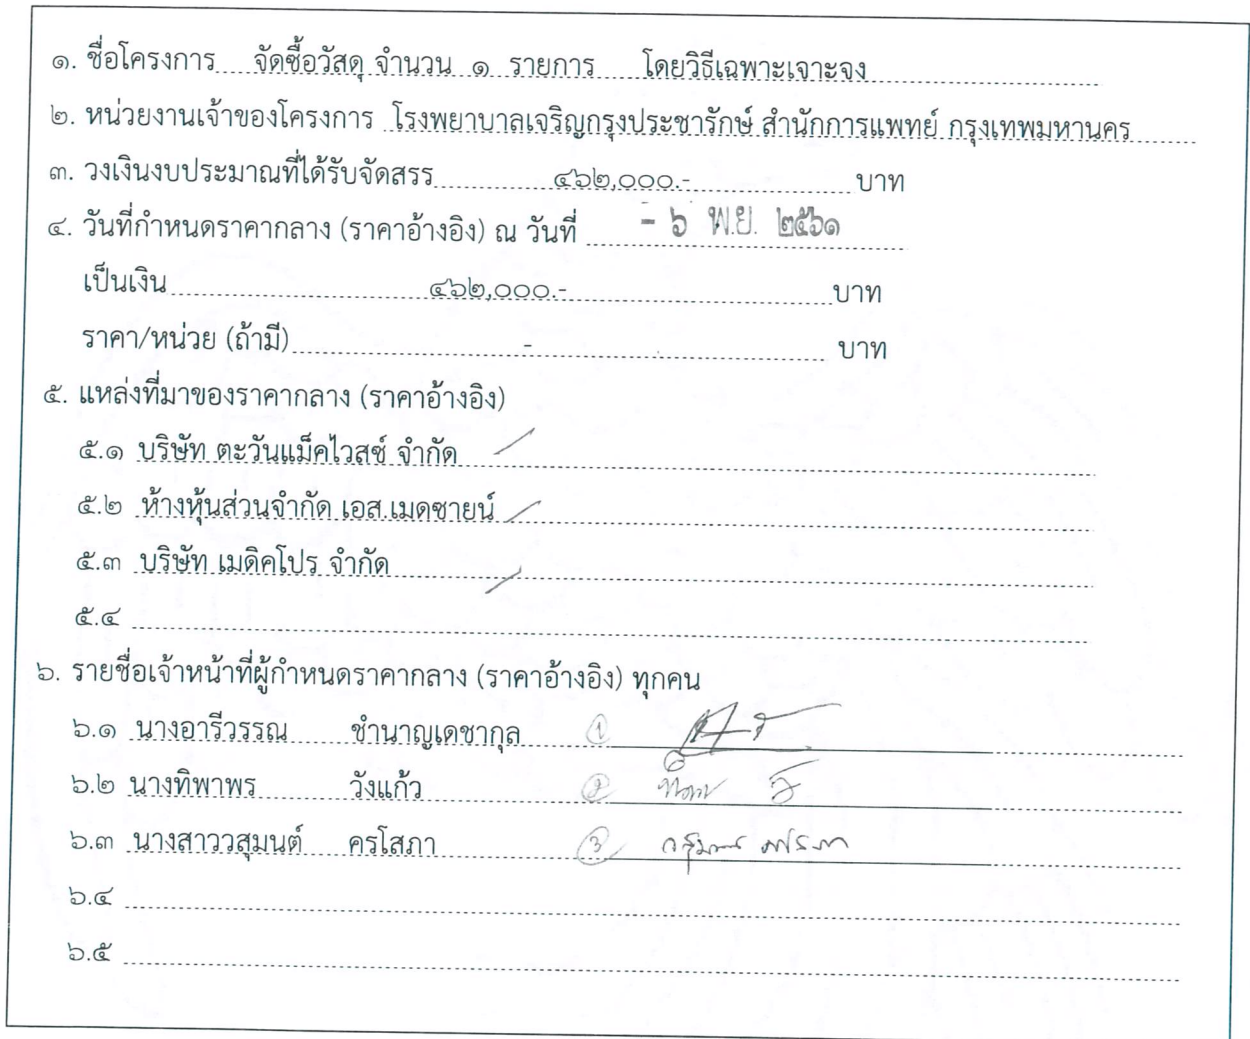 ๑. ชื่อโครงการ จัดซื้อวัสดุ จำนวน ๑ รายการ โดยวิธีเฉพาะเจาะจง
๒. หน่วยงานเจ้าของโครงการ โรงพยาบาลเจริญกรุงประชารักษ์ สำนักการแพทย์ กรุงเทพมหานคร
๓. วงเงินงบประมาณที่ได้รับจัดสรร ๔๖๒,๐๐๐.- บาท
๔. วันที่กำหนดราคากลาง (ราคาอ้างอิง) ณ วันที่ - ๖ พ.ย. ๒๕๖๑
เป็นเงิน ๔๖๒,๐๐๐.- บาท
ราคา/หน่วย (ถ้ามี) - บาท
๕. แหล่งที่มาของราคากลาง (ราคาอ้างอิง)
๕.๑ บริษัท ตะวันแม็คไวสซ์ จำกัด
๕.๒ ห้างหุ้นส่วนจำกัด เอส.เมดซายน์
๕.๓ บริษัท เมดิคโปร จำกัด
๕.๔
๖. รายชื่อเจ้าหน้าที่ผู้กำหนดราคากลาง (ราคาอ้างอิง) ทุกคน
๖.๑ นางอารีวรรณ ชำนาญเดชากุล 1
๖.๒ นางทิพาพร วังแก้ว 2
๖.๓ นางสาววสุมนต์ ครโสภา 3
๖.๔
๖.๕